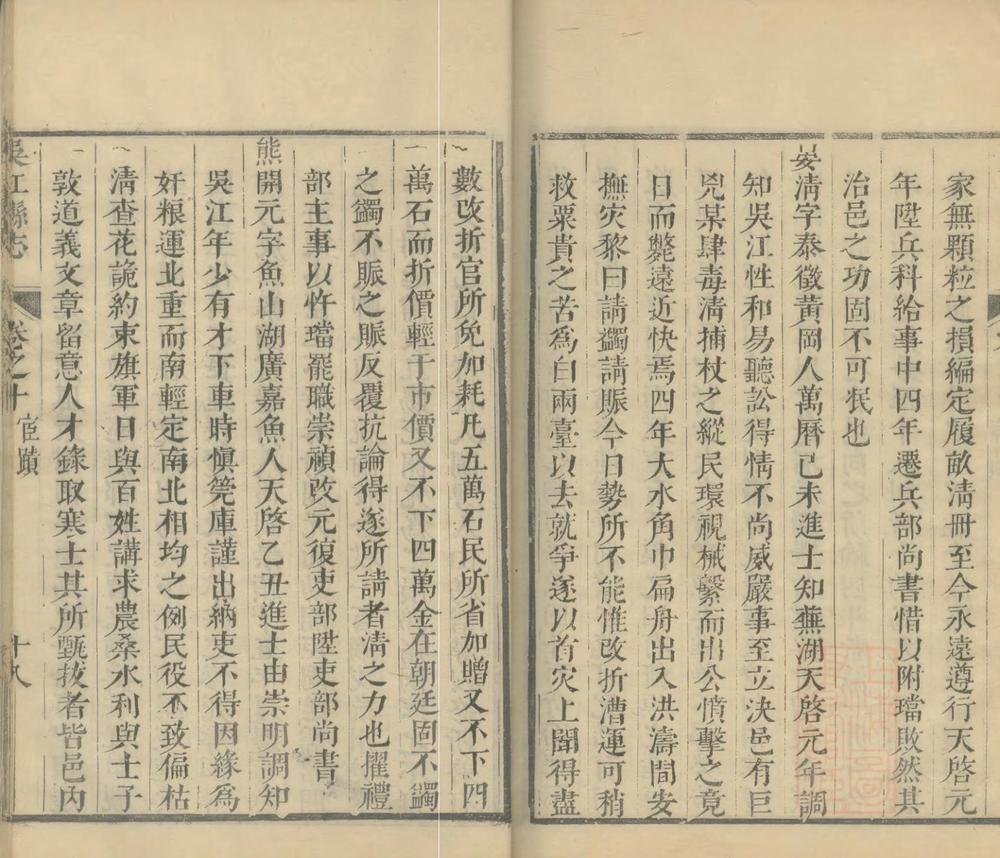 家無顆粒之損編定履畝淸冊至今永遠遵行天啓元
年陞兵科給事中四年遷兵部尚書惜以附璫敗然其
治邑之功固不可泯也
晏淸字泰徵黃岡人萬曆己未進士知蕪湖天啓元年調
知吳江性和易聽訟得情不尚威嚴事至立決邑有巨
兇某肆毒淸捕杖之縱民環視械繫而出公憤擊之竟
日而斃遠近快焉四年大水角巾扁舟出入洪濤間安
撫灾黎曰請蠲請賑今日勢所不能惟改折漕運可稍
救粟貴之苦爲白兩臺以去就爭遂以首灾上聞得盡
數改折官所免加耗凡五萬石民所省加贈又不下四
萬石而折價輕于市價又不下四萬金在朝廷固不蠲
之蠲不賑之賑反覆抗論得遂所請者淸之力也擢禮
部主事以忤璫罷職崇禎改元復吏部陞吏部尚書
熊開元字魚山湖廣嘉魚人天啓乙丑進士由崇明調知
吳江年少有才下車時愼筦庫謹出納吏不得因緣爲
奸粮運北重而南輕定南北相均之例民役不致偏枯
淸查花詭約束旗軍日與百姓講求農桑水利與士子
敦道義文章留意人才錄取寒士其所甄拔者皆邑內
吳江縣志 卷之十 宦蹟 十八